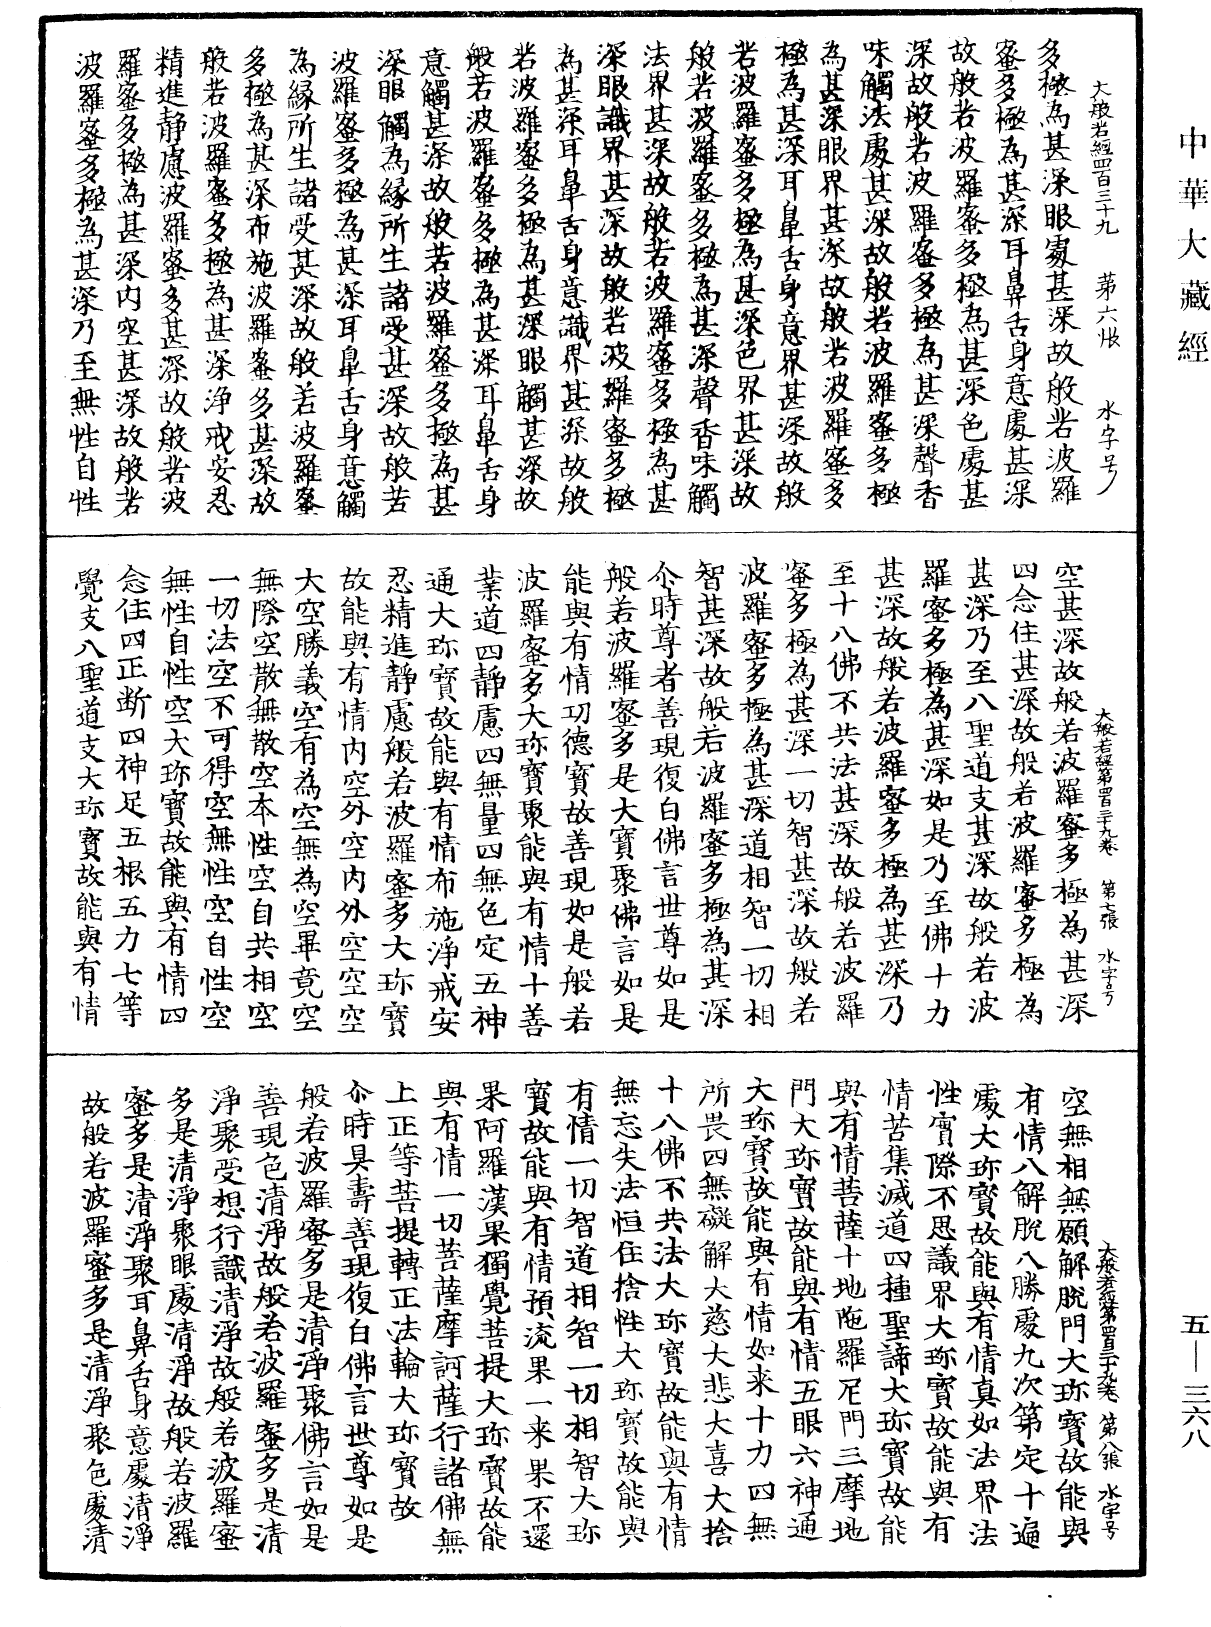 中華大藏經
大般若經四百三十九　第六張　水字号
多極為甚深眼處甚深故般若波羅
蜜多極為甚深耳鼻舌身意處甚深
故般若波羅蜜多極為甚深色處甚
深故般若波羅蜜多極為甚深聲香
味觸法處甚深故般若波羅蜜多極
為甚深眼界甚深故般若波羅蜜多
極為甚深耳鼻舌身意界甚深故般
若波羅蜜多極為甚深色界甚深故
般若波羅蜜多極為甚深聲香味觸
法界甚深故般若波羅蜜多極為甚
深眼識界甚深故般若波羅蜜多極
為甚深耳鼻舌身意識界甚深故般
若波羅蜜多極為甚深眼觸甚深故
般若波羅蜜多極為甚深耳鼻舌身
意觸甚深故般若波羅蜜多極為甚
深眼觸為緣所生諸受甚深故般若
波羅蜜多極為甚深耳鼻舌身意觸
為緣所生諸受甚深故般若波羅蜜
多極為甚深布施波羅蜜多甚深故
般若波羅蜜多極為甚深淨戒安忍
精進靜慮波羅蜜多甚深故般若波
羅蜜多極為甚深內空甚深故般若
波羅蜜多極為甚深乃至無性自性
大般若經第四百三十九卷　第七張　水字号
空甚深故般若波羅蜜多極為甚深
四念住甚深故般若波羅蜜多極為
甚深乃至八聖道支甚深故般若波
羅蜜多極為甚深如是乃至佛十力
甚深故般若波羅蜜多極為甚深乃
至十八佛不共法甚深故般若波羅
蜜多極為甚深一切智甚深故般若
波羅蜜多極為甚深道相智一切相
智甚深故般若波羅蜜多極為甚深
尒時尊者善現復白佛言世尊如是
般若波羅蜜多是大寶聚佛言如是
能與有情功德寶故善現如是般若
波羅蜜多大珎寶聚能與有情十善
業道四靜慮四無量四無色定五神
通大珎寶故能與有情布施淨戒安
忍精進靜慮般若波羅蜜多大珎寶
故能與有情內空外空內外空空空
大空勝義空有為空無為空畢竟空
無際空散無散空本性空自共相空
一切法空不可得空無性空自性空
無性自性空大珎寶故能與有情四
念住四正斷四神足五根五力七等
覺支八聖道支大珎寶故能與有情
大般若經第四百三十九卷　第八張　水字号
空無相無願解脫門大珎寶故能與
有情八解脫八勝處九次第定十遍
處大珎寶故能與有情真如法界法
性實際不思議界大珎寶故能與有
情苦集滅道四種聖諦大珎寶故能
與有情菩薩十地陁羅尼門三摩地
門大珎寶故能與有情五眼六神通
大珎寶故能與有情如来十力四無
所畏四無礙解大慈大悲大喜大捨
十八佛不共法大珎寶故能與有情
無忘失法恒住捨性大珎寶故能與
有情一切智道相智一切相智大珎
寶故能與有情預流果一来果不還
果阿羅漢果獨覺菩提大珎寶故能
與有情一切菩薩摩訶薩行諸佛無
上正等菩提轉正法輪大珎寶故
尒時具壽善現復白佛言世尊如是
般若波羅蜜多是清淨聚佛言如是
善現色清淨故般若波羅蜜多是清
淨聚受想行識清淨故般若波羅蜜
多是清淨聚眼處清淨故般若波羅
蜜多是清淨聚耳鼻舌身意處清淨
故般若波羅蜜多是清淨聚色處清
五—三六八